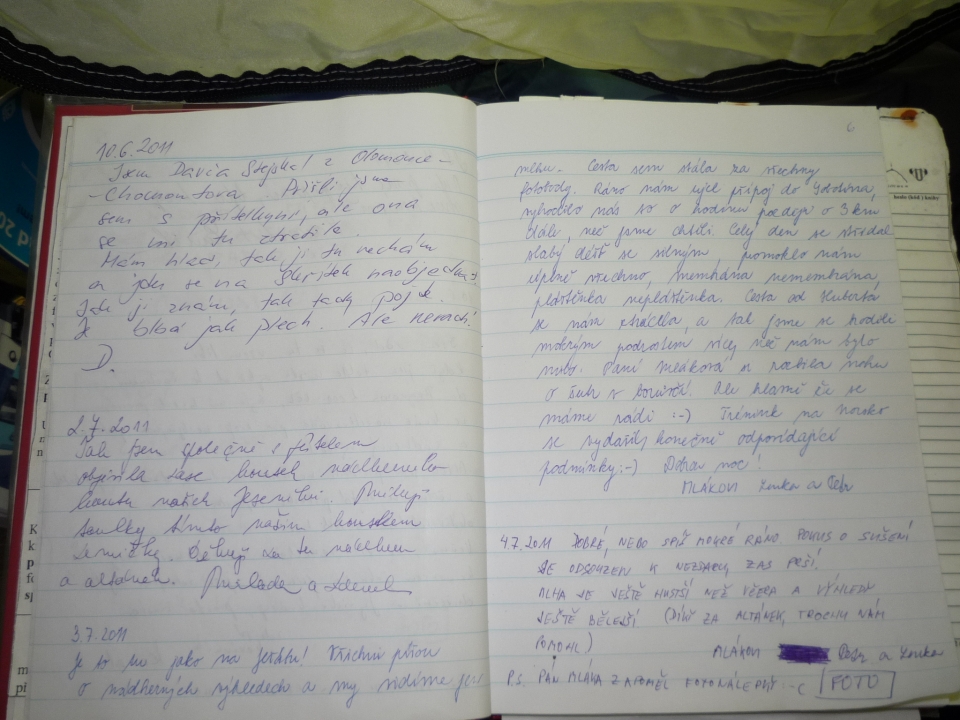 10.6.2011
Jsem David Stejskal z Olomouce -
- Chomoutova. Přišli jsme
sem s přítelkyní, ale ona
se mi tu ztratila.
Mám hlad, tak ji tu nechám
a jdu se na
Jak ji znám, tak tady pojde.
Je blbá jak plech. Ale nevadí.
D.
2.7.2011
Tak jsem společně s přítelem
objevila zase kousek nádherného
koutu našich Jeseníků.
toulky tímto naším kouskem
Děkuji za tu nádheru
a altánek. a Zdeněk
3.7.2011
Je to tu jako na Všichni píšou
o nádherných výhledech a my vidíme jen
6
mlhu. Cesta sem stála za všechny
Ráno nám ujel přípoj do
vyhodilo nás to o hodinu později o 3 km
dále, než jsme chtěli. Celý den se střídal
slabý déšť se silným, pomoklo nám
úplně všechno, membrána nemembrána,
pláštěnka nepláštěnka. Cesta od Huberta
se nám ztratila, a tak jsme se
mokrým podrostem více než nám bylo
milo. Paní Mláková si narazila nohu
o šutr v borůvčí. Ale hlavně že se
máme rádi :-) Trénink na Norsko
se vydařil, konečně odpovídající
podmínky :-) Dobrou noc!
MLÁKOVI Lenka a Petr
4.7.2011 DOBRÉ, NEBO SPÍŠ MOKRÉ RÁNO. POKUS O SUŠENÍ
JE ODSOUZEN K NEZDARU, ZAS PRŠÍ.
MLHA JE JEŠTĚ HUSTŠÍ NEŽ VČERA A VÝHLEDY
JEŠTĚ BĚLEJŠÍ (DÍKY ZA ALTÁNEK, TROCHU NÁM
POMOHL)
MLÁKOVI Petr a Lenka
P.S. PÁN MLÁKA ZAPOMĚL FOTONÁLEPKY :-( FOTO